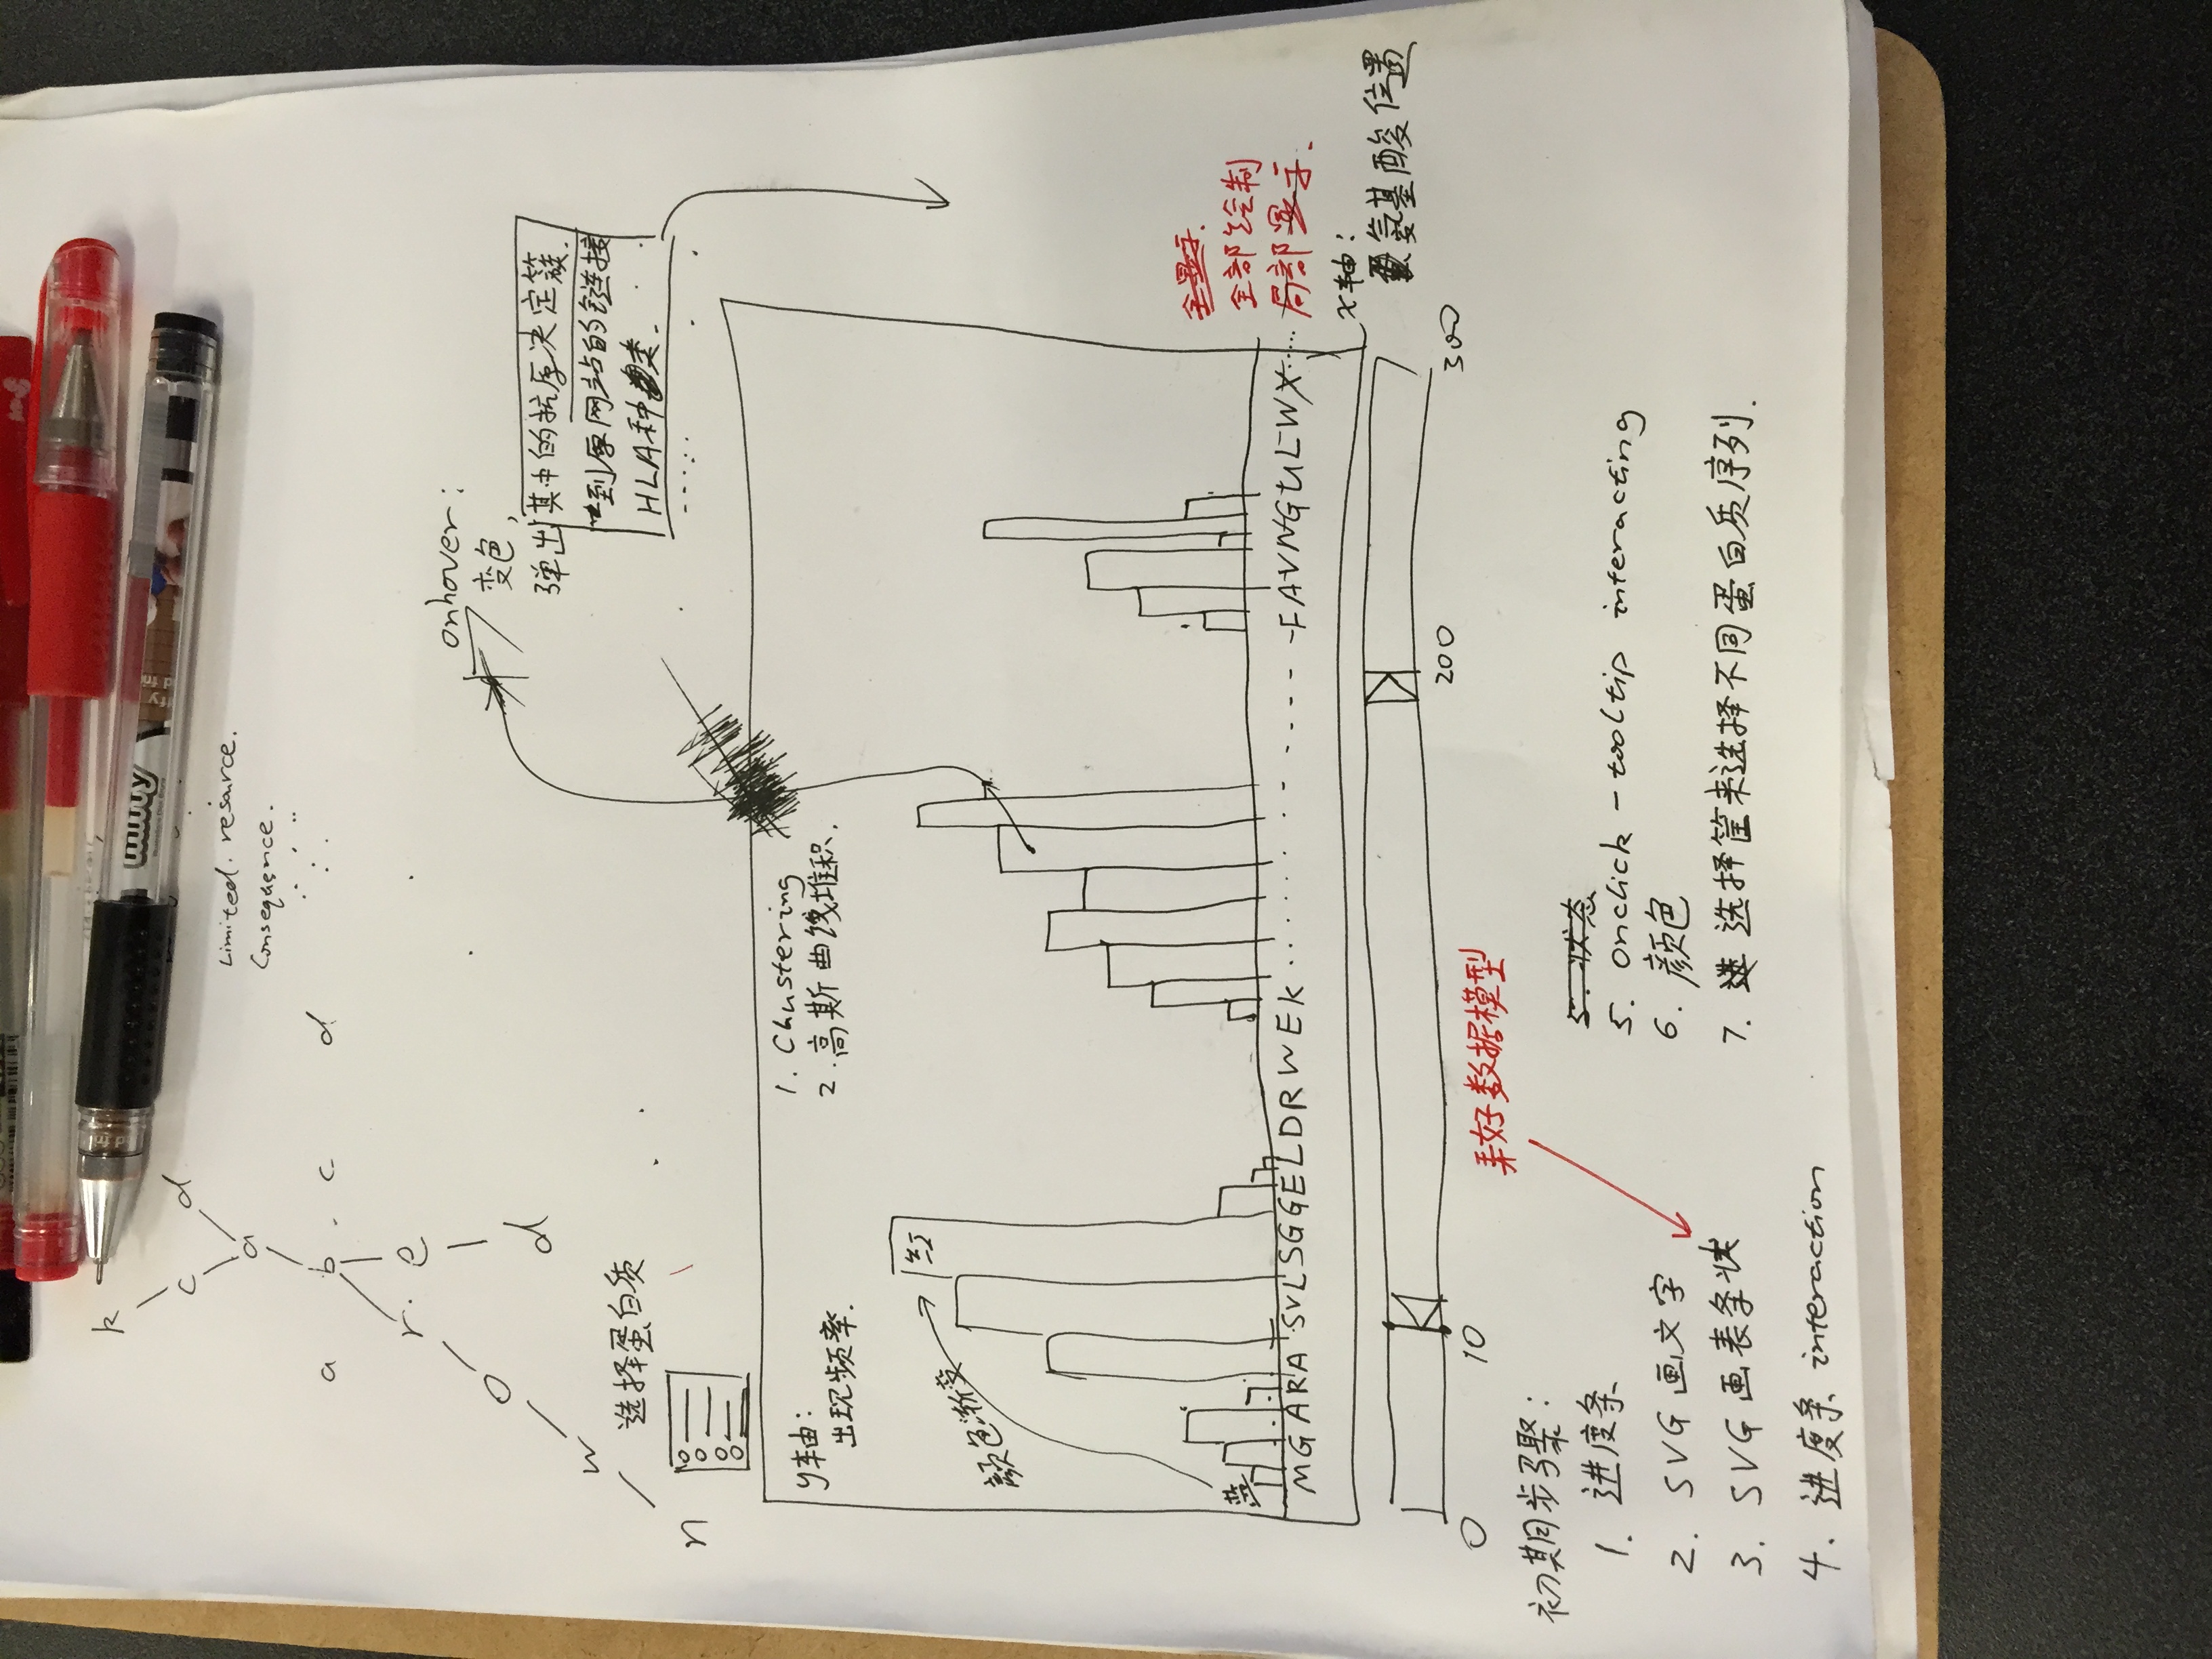 miffy
k
c d
a
Limited. resource.
Consequence.
a b. c d
r. e
o
d
w
n
选择蛋白质
onhover:
变色,
弹出 其中的抗原决定簇.
到原网站的链接
HLA种类.
y轴:
出现频率.
1. Clustering
2. 高斯曲线堆积.
颜色渐变
红
蓝
MGARA SVLSGGELDRWEK......... -FAVNGULWX.....
全显示.
全部绘制
局部显示.
x轴:
氨基酸位置
0 10 200 300
弄好数据模型
初期步骤:
1. 进度条
2. SVG 画文字
3. SVG 画表条状
4. 进度条 interaction
5. 状态
5. onclick - tooltip interacting
6. 颜色
7. 选择筐来选择不同蛋白质序列.